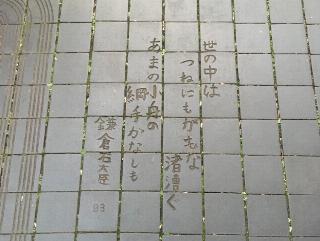 世の中は
つねにもがもな
渚漕ぐ
あまの小舟の
綱手かなしも
鎌倉右大臣
93